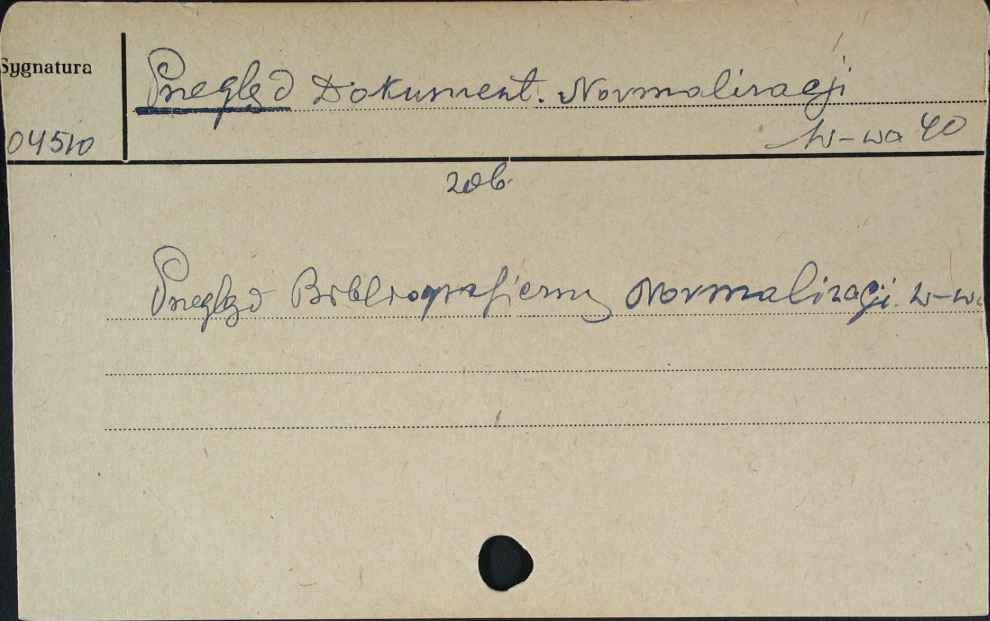 Sygnatura
Przegląd Dokument. Normalizacji
04510
W-wa 40
zob.
Przegląd Bibliograficzny Normalizacji. W-wa